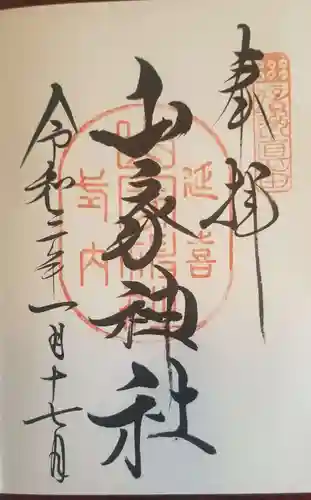 奉拝
延喜
式内
山家神社
令和二年一月十七日